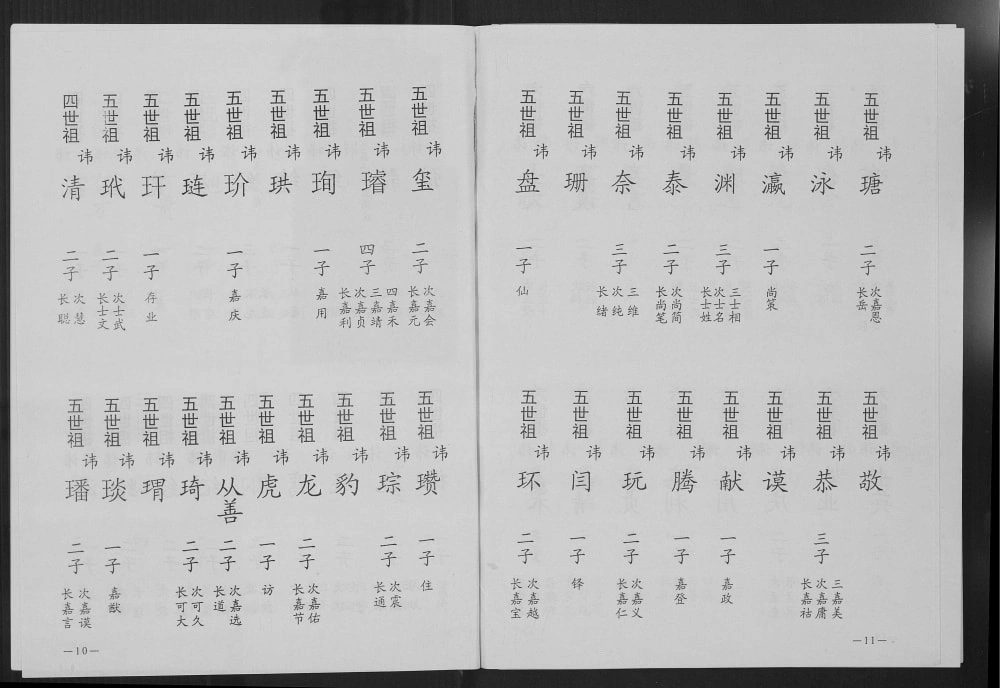 四世祖讳清 二子 长聪 次慧
五世祖讳玳 二子 长士文 次士武
五世祖讳玕 一子 存业
五世祖讳琏
五世祖讳玠 一子 嘉庆
五世祖讳珙
五世祖讳珣 一子 嘉用
五世祖讳璿 四子 长嘉利 次嘉贞 三嘉靖 四嘉禾
五世祖讳玺 二子 长嘉元 次嘉会
五世祖讳璠 二子 长嘉言 次嘉谟
五世祖讳琰 一子 嘉猷
五世祖讳琄
五世祖讳琦 二子 长可大 次可久
五世祖讳从善 二子 长道 次嘉选
五世祖讳虎 一子 访
五世祖讳龙 二子 长嘉节 次嘉佑
五世祖讳豹
五世祖讳琮 二子 长通 次震
五世祖讳瓒 一子 住
—10—
五世祖讳盘 一子 仙
五世祖讳珊
五世祖讳奈 三子 长绪 次纯 三维
五世祖讳泰 二子 长尚笔 次尚简
五世祖讳渊 三子 长士姓 次士名 三士相
五世祖讳瀛 一子 尚策
五世祖讳泳
五世祖讳瑭 二子 长岳 次嘉恩
五世祖讳环 二子 长嘉宝 次嘉越
五世祖讳闫 一子 铎
五世祖讳玩 二子 长嘉仁 次嘉义
五世祖讳腾 一子 嘉登
五世祖讳献 一子 嘉政
五世祖讳谟
五世祖讳恭 三子 长嘉祜 次嘉庸 三嘉美
五世祖讳敬
—11—